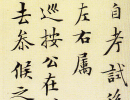 自考試後
左右屬
巡按公在
去參候之